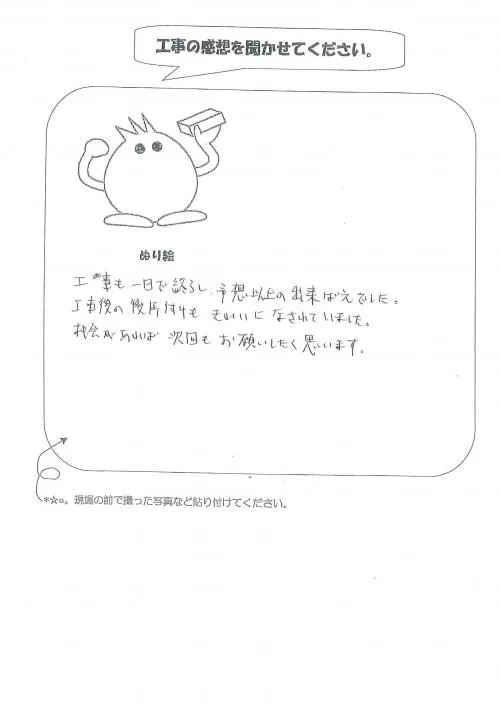 工事の感想を聞かせてください。
ぬり絵
工事も一日で終るし、予想以上の出来ばえでした。
工事後の後片付けもきれいになされていました。
機会があれば次回もお願いしたく思います。
*☆○。現場の前で撮った写真など貼り付けてください。